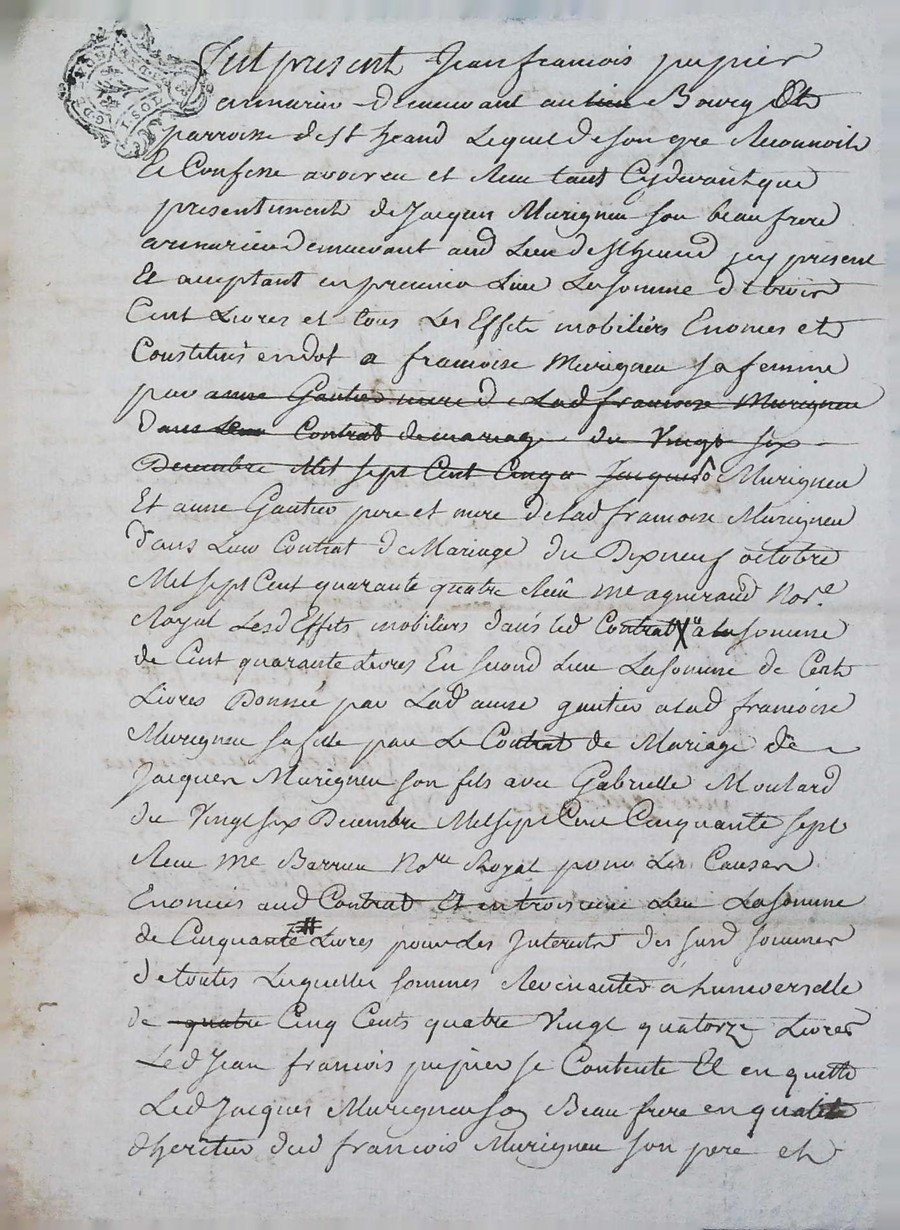 fut present Jean francois pupier
armurier demeurant au lieu Bourg et
parroisse de st heand Lequel de son gre Reconnoit
Et Confesse avoir eu et Receu tant Cydevant que
presentement de Jacques Murigneu son beau frere
armurier demeurant aud Lieu de st heand icy present
Et aceptant en premier Lieu La somme de trois
Cent Livres et tous Les Effets mobiliers Enoncés et
Constitués en dot a francoise Murigneu sa femme
par anne Gautier mere de Lad francoise Murigneu
dans Leur Contrat de mariage du Vingt six
Decembre Mil sept Cent Cinqu Jacques Murigneu
Et anne Gautier pere et mere de Lad francoise Murigneu
dans Leur Contrat de Mariage du Dixneuf octobre
Mil sept Cent quarante quatre Receu me aguiraud Nore
Royal Lesd Effets mobiliers dans led Contrat a La somme
de Cent quarante Livres En second Lieu La somme de Cent
Livres Donnée par Lad anne gautier a lad francoise
Murigneu sa fille par Le Contrat de Mariage de
Jacques Murigneu son fils avec Gabrielle Moulard
du Vingt six Decembre Mil sept Cent Cinquante sept
Receu me Barrieu Nore Royal pour Les Causes
Enoncées aud Contrat Et en troisieme Lieu La somme
de Cinquante # Livres pour Les Interets des susd sommes
de toutes Lesquelles sommes Revenantes a L'universelle
de quatre Cinq Cents quatre Vingt quatorze Livres
Led Jean francois pupier se Contente Et en quitte
Led Jacques Murigneu son Beau frere en qualité
d'heritier dud francois Murigneu son pere et